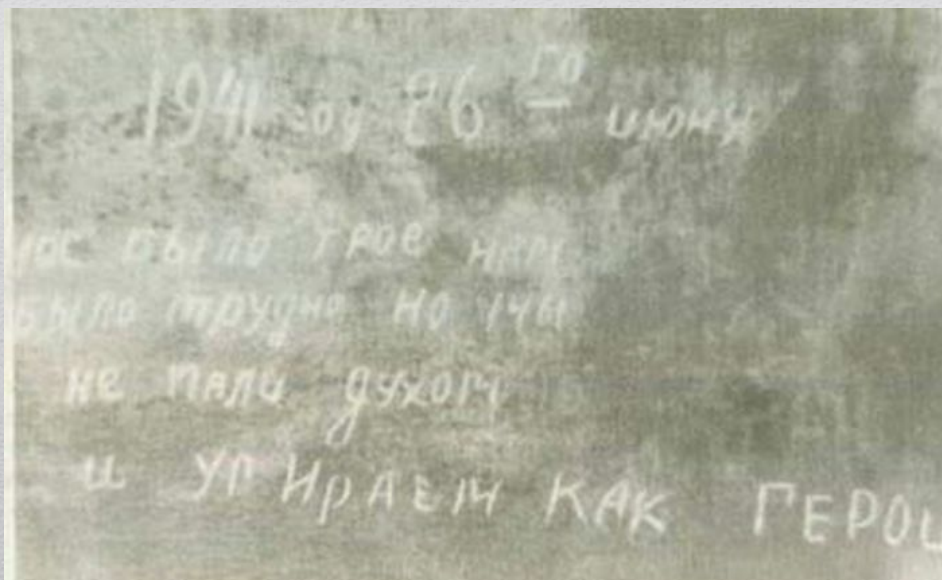 1941 год 26 го июня
нас было трое нам
было трудно но мы
не пали духом
и умираем как герои